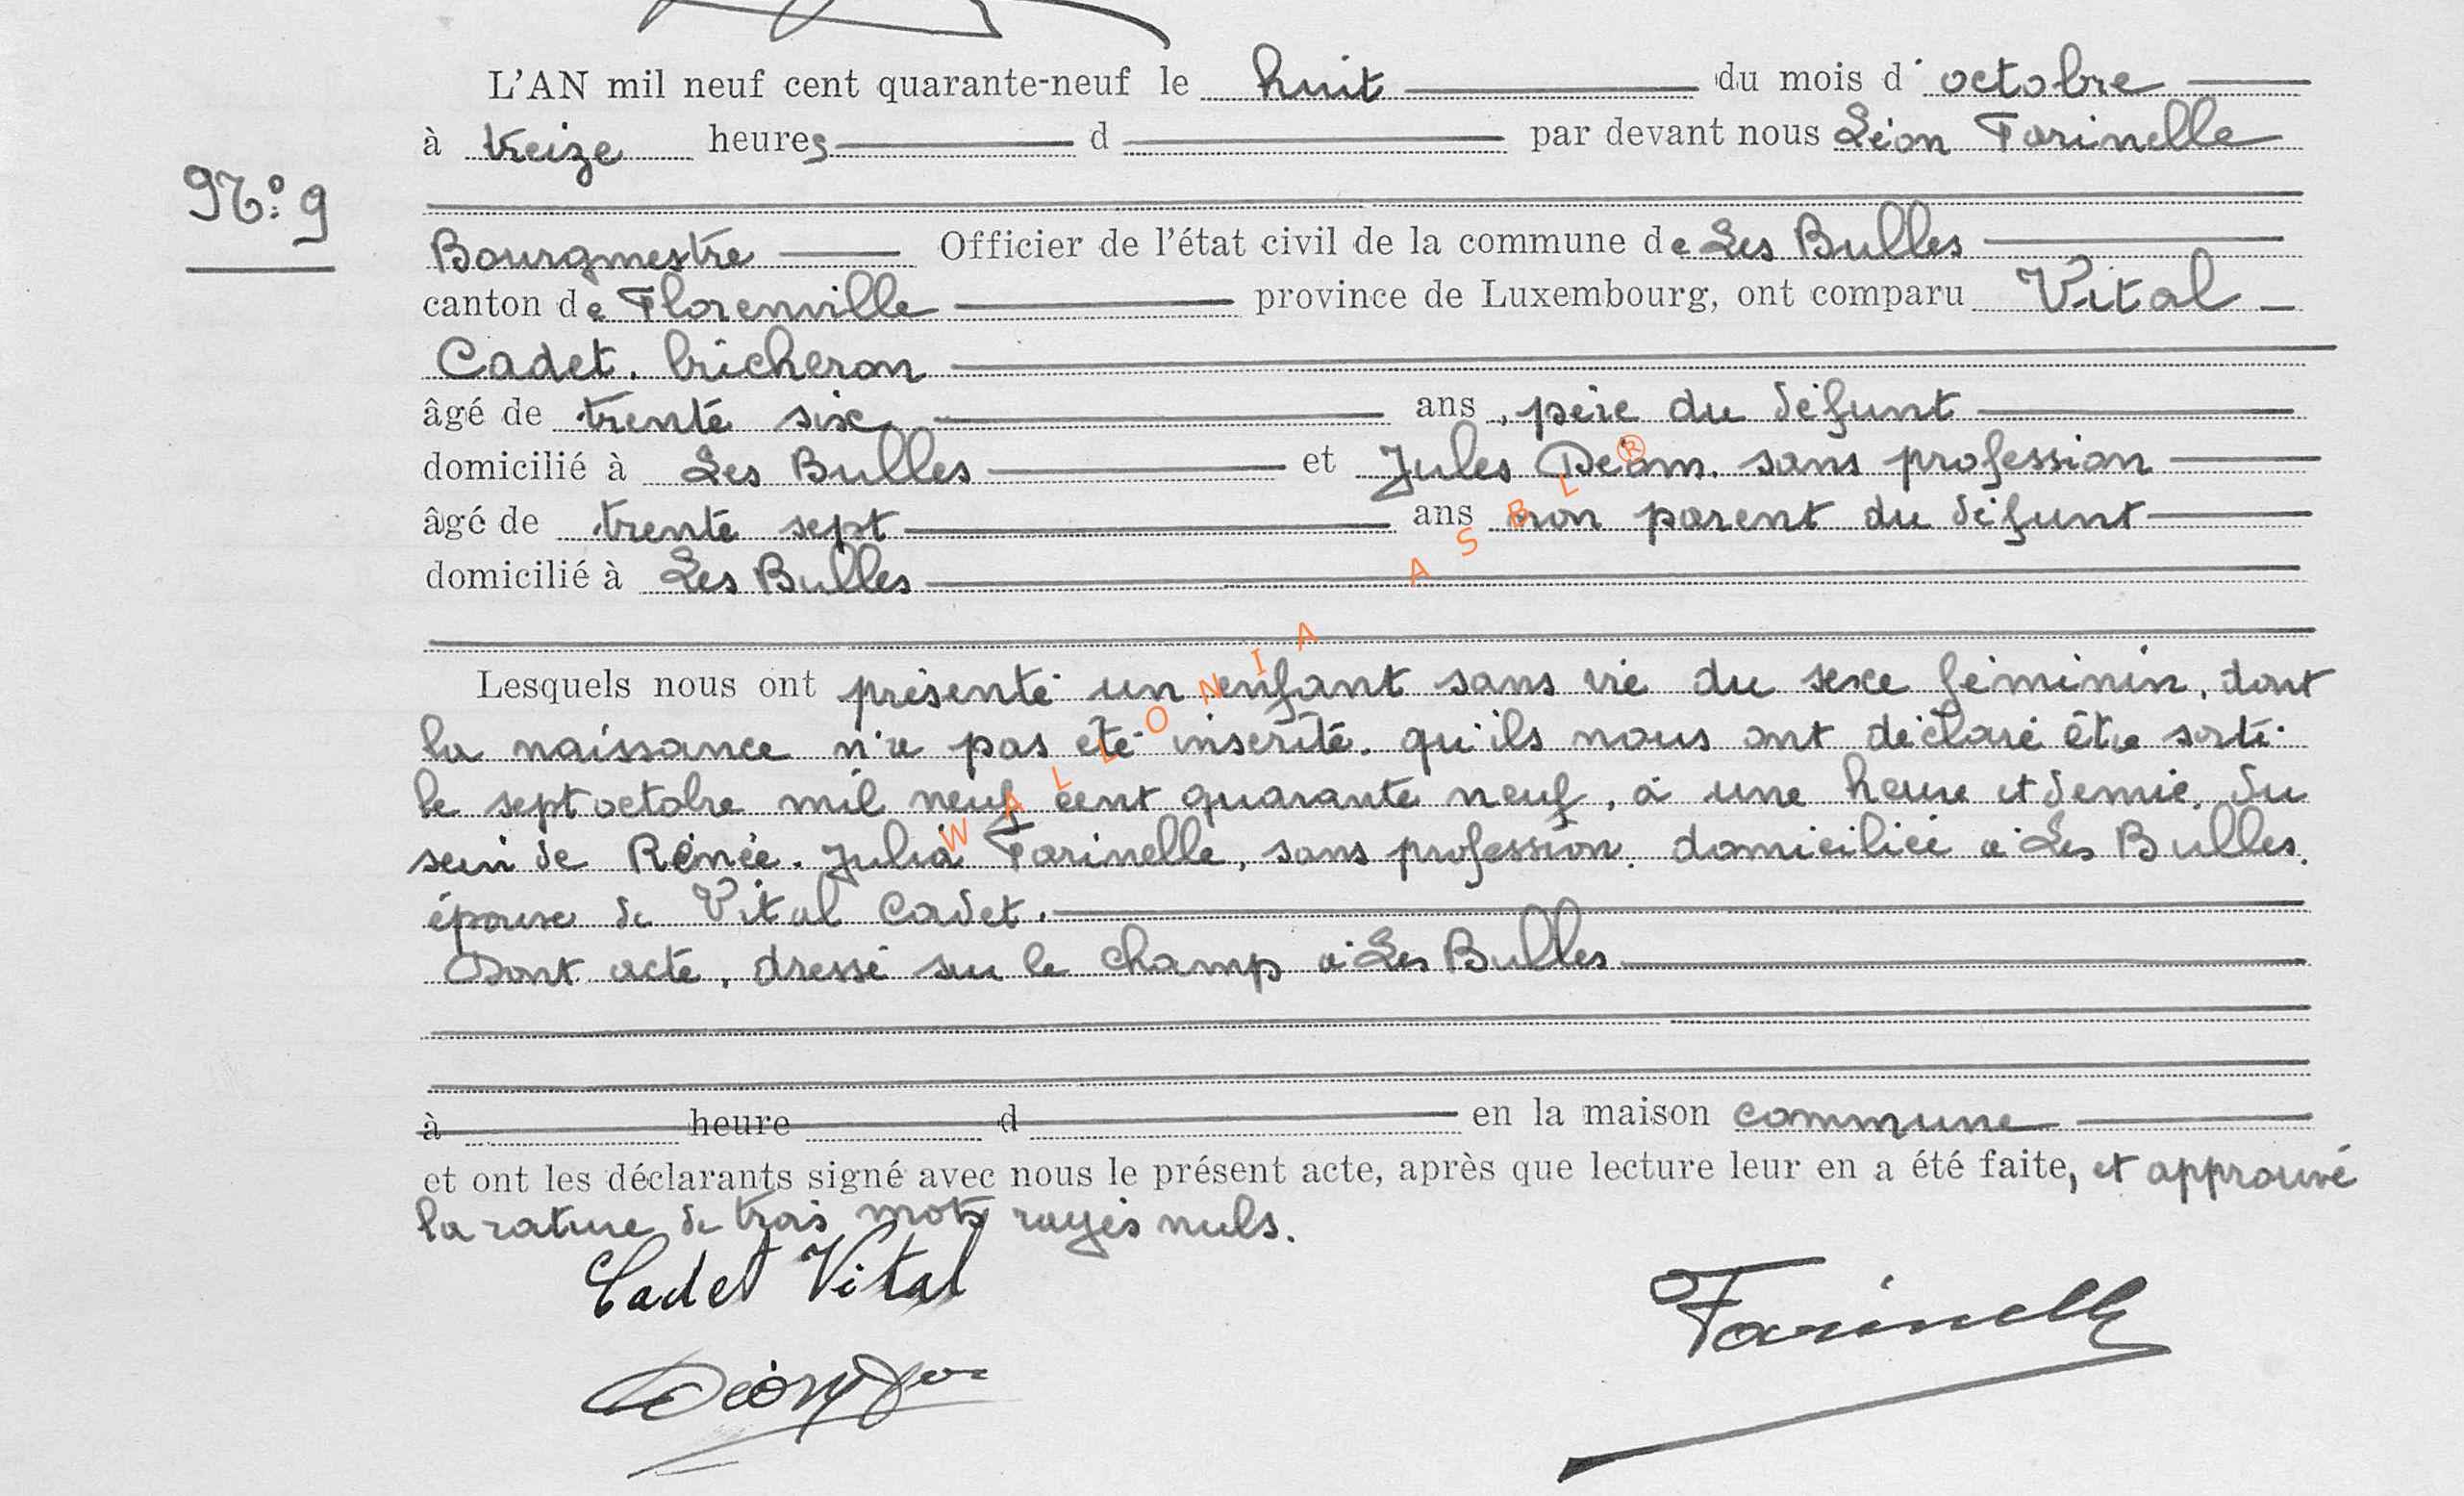 L'AN mil neuf cent quarante-neuf le huit du mois d'octobre
à treize heures d par devant nous Léon Farinelle
N° 9
Bourgmestre Officier de l'état civil de la commune de Les Bulles
canton de Florenville province de Luxembourg, ont comparu Vital
Cadet. bûcheron
âgé de trente six ans, père du défunt
domicilié à Les Bulles et Jules Déom. sans profession
âgé de trente sept ans non parent du défunt
domicilié à Les Bulles
Lesquels nous ont présenté un enfant sans vie du sexe féminin, dont
la naissance n'a pas été inscrite. qu'ils nous ont déclaré être sorti
le sept octobre mil neuf cent quarante neuf, à une heure et demie. du
sein de Rénée. Julia Farinelle, sans profession. domiciliée à Les Bulles.
épouse de Vital Cadet.
Dont acte, dressé sur le champ à Les Bulles
à heure d en la maison commune
et ont les déclarants signé avec nous le présent acte, après que lecture leur en a été faite, et approuvé
la rature de trois mots rayés nuls.
Cadet Vital
Farinelle
Déom
WALLONIA ASBL ®